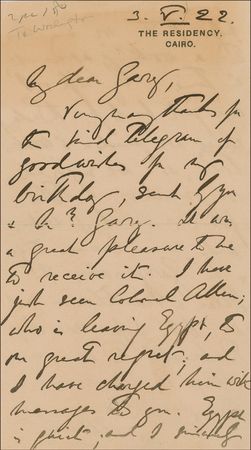 3. V. 22.
THE RESIDENCY,
CAIRO.
My dear Gary,
Very many thanks for
the kind telegram of
good wishes for my
birthday, sent by you
& Mrs Gary. It was
a great pleasure to me
to receive it. I have
just seen Colonel Allen,
who is leaving Egypt, to
my great regret, and
I have charged him with
messages to you. Egypt
is quiet, and I sincerely